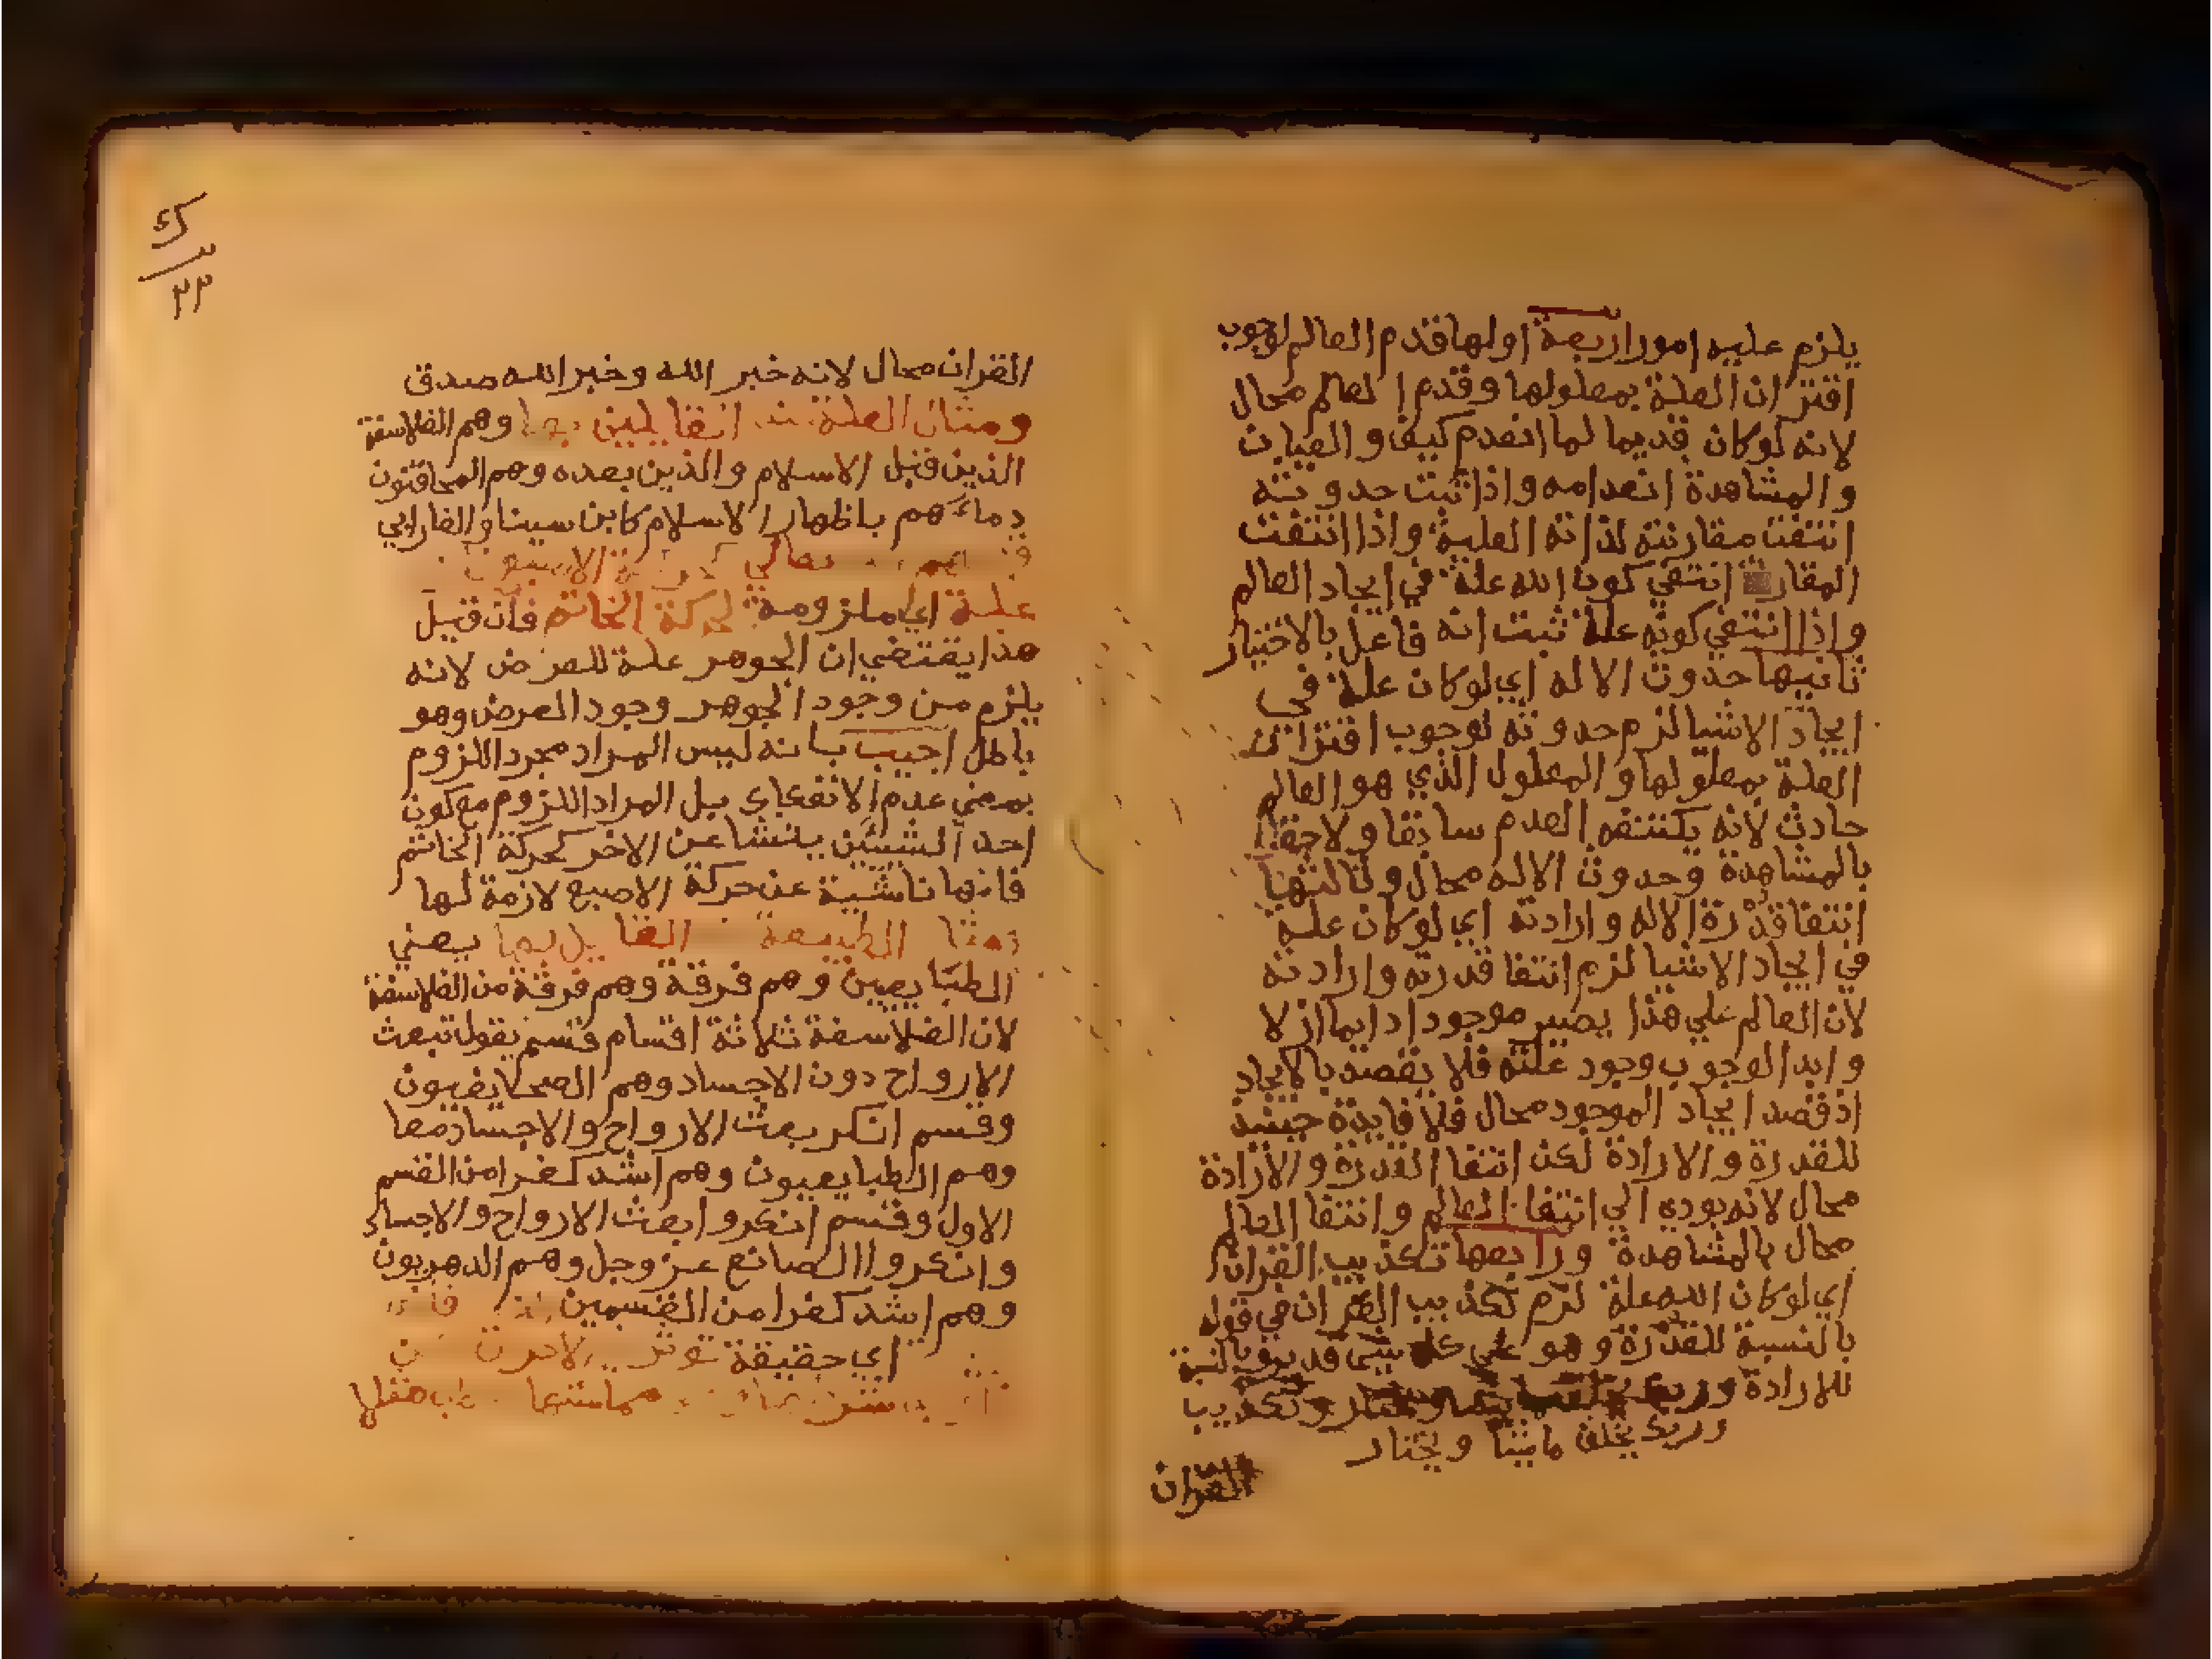 يلزم عليه امور اربعة اولها قدم العالم لوجوب
اقتران العلة بمعلولها وقدم العالم محال
لانه لوكان قديما لما انعدم كيف والعيان
والمشاهدة انعدامه واذا ثبت حدوثه
انتفت مقارنته لذاته العلية واذا انتفت
انتفي كون الله علة في ايجاد العالم
واذا انتفي كونه علة ثبت انه فاعل بالاختيار
ثانيها حدوث الاله اي لوكان علة في
ايجاد الاشيا لزم حدوثه لوجوب اقتران
العلة بمعلولها والمعلول الذي هو العالم
حادث لانه يكتنفه العدم سابقا ولاحقا
بالمشاهدة وحدوث الاله محال وثالثها
انتفا قدرة الاله وارادته اي لوكان علة
في ايجاد الاشيا لزم انتفا قدرته وارادته
لان العالم علي هذا يصير موجودا دايما ازلا
وابدا لوجوب وجود علته فلا يقصد بالايجاد
اذ قصد ايجاد الموجود محال فلا فايدة حينيذ
للقدرة والارادة لكن انتفا القدرة والارادة
محال لانه يودي الي انتفا العالم وانتفا العالم
محال بالمشاهدة ورابعها تكذيب القران
اي لوكان الله علة لزم تكذيب القران في قوله
بالنسبة للقدرة وهو علي كل شي قدير وبالنسبة
للارادة وتكذيب
وربك يخلق ما يشا ويختار
القران
ك
٢٣
القران محال لانه خبر الله وخبر الله صدق
ومثال العلة عند القايلين بها وهم الفلاسفة
الذين قبل الاسلام والذين بعده وهم المحاقنون
دماءهم باظهار الاسلام كابن سينا والفارابي
تعالي حركة الاصبع
علة اي ملزومة لحركة الخاتم فان قيل
هذا يقتضي ان الجوهر علة للعرض لانه
يلزم من وجود الجوهر وجود العرض وهو
باطل اجيب بانه ليس المراد مجرد اللزوم
بمعني عدم الانفكاك بل المراد اللزوم مع كون
احد الشيئين ينشا عن الاخر كحركة الخاتم
فانها ناشية عن حركة الاصبع لازمة لها
الطبيعة القايل بها يعني
الطبايعيين وهم فرقة وهم فرقة من الفلاسفة
لان الفلاسفة ثلاثة اقسام قسم يقول تبعث
الارواح دون الاجساد وهم
وقسم انكر بعث الارواح والاجساد معا
وهم الطبايعيون وهم اشد كفرا من القسم
الاول وقسم انكروا بعث الارواح والاجساد
وانكروا الصانع عز وجل وهم الدهريون
وهم اشد كفرا من القسمين
اي حقيقة توثر
مماستها مثلا